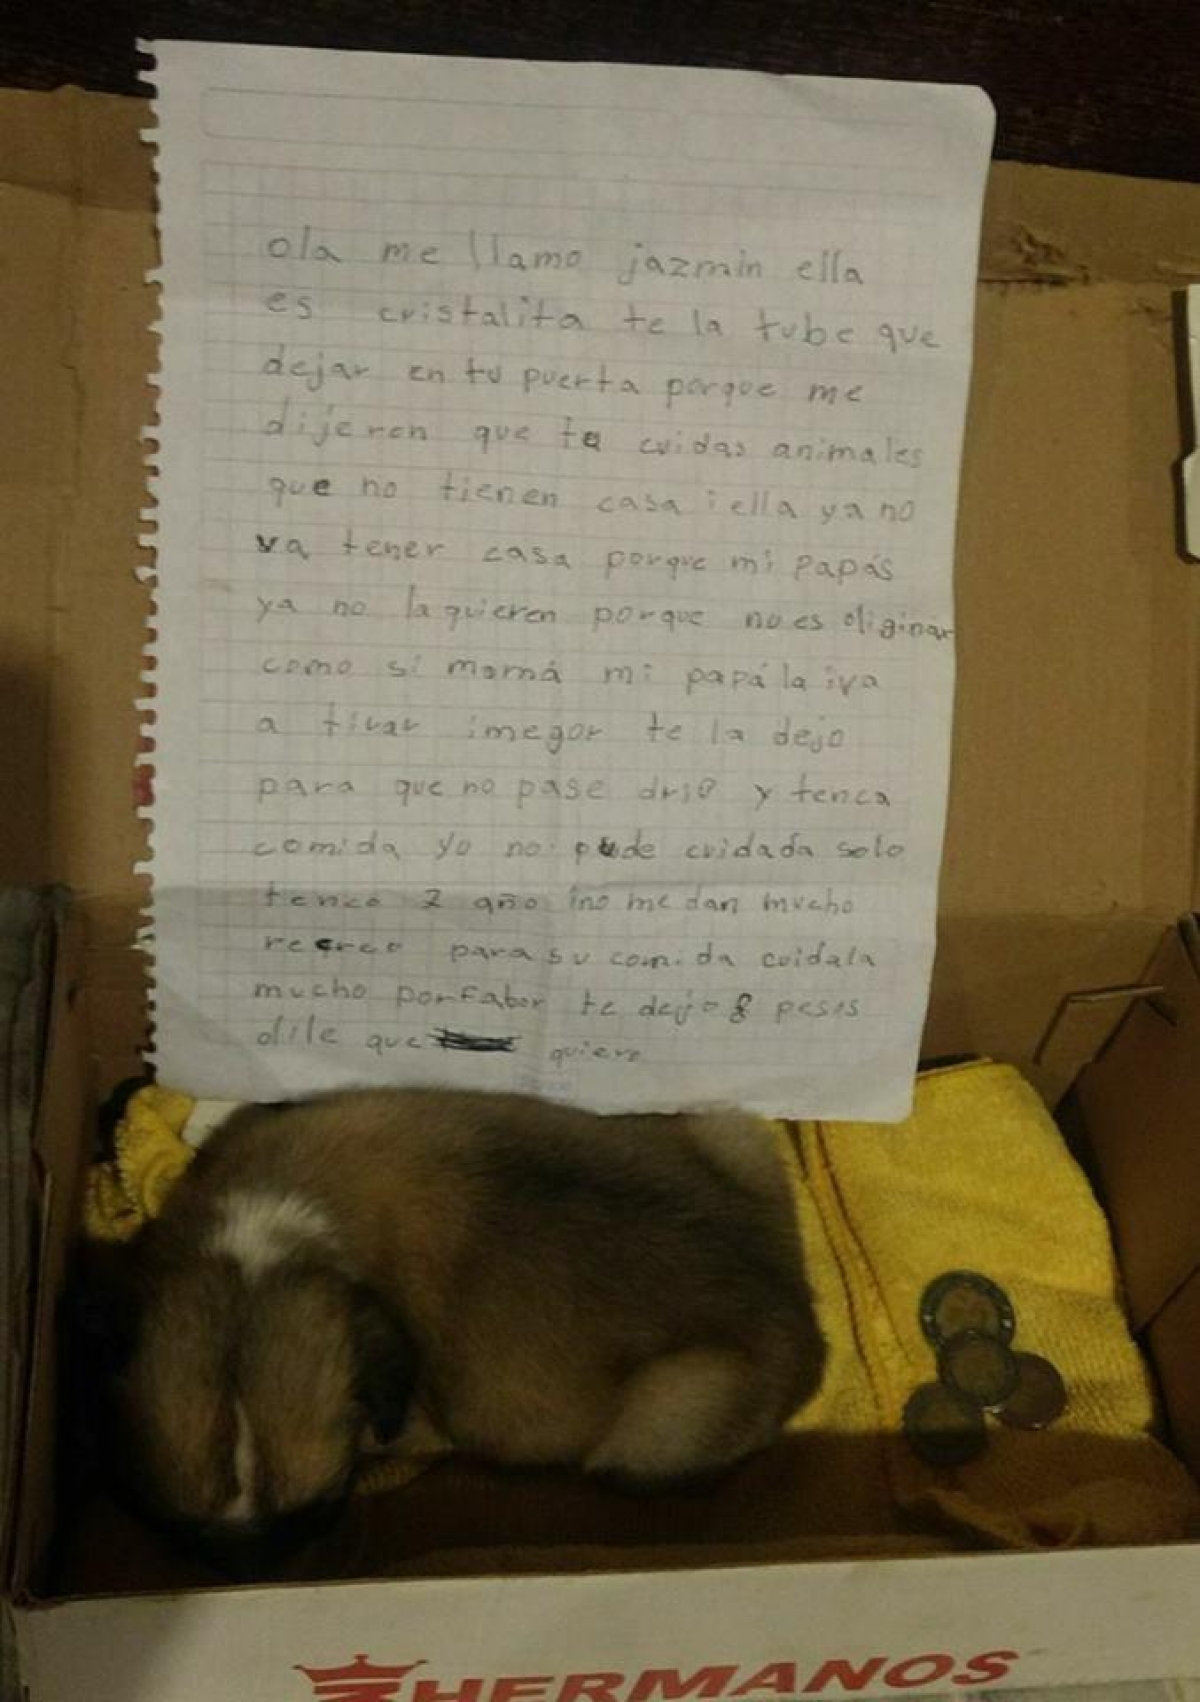 ola me llamo jazmin ella
es cristalita te la tube que
dejar en tu puerta porque me
dijeron que tu cuidas animales
que no tienen casa i ella ya no
va tener casa porque mi papás
ya no la quieren porque no es oliginar
como si mamá mi papá la iva
a tirar i megor te la dejo
para que no pase drio y tenca
comida yo no pude cuidada solo
tenco 7 año i no me dan mucho
recreo para su comida cuidala
mucho porfabor te dejo 8 pesos
dile que quiero
HERMANOS